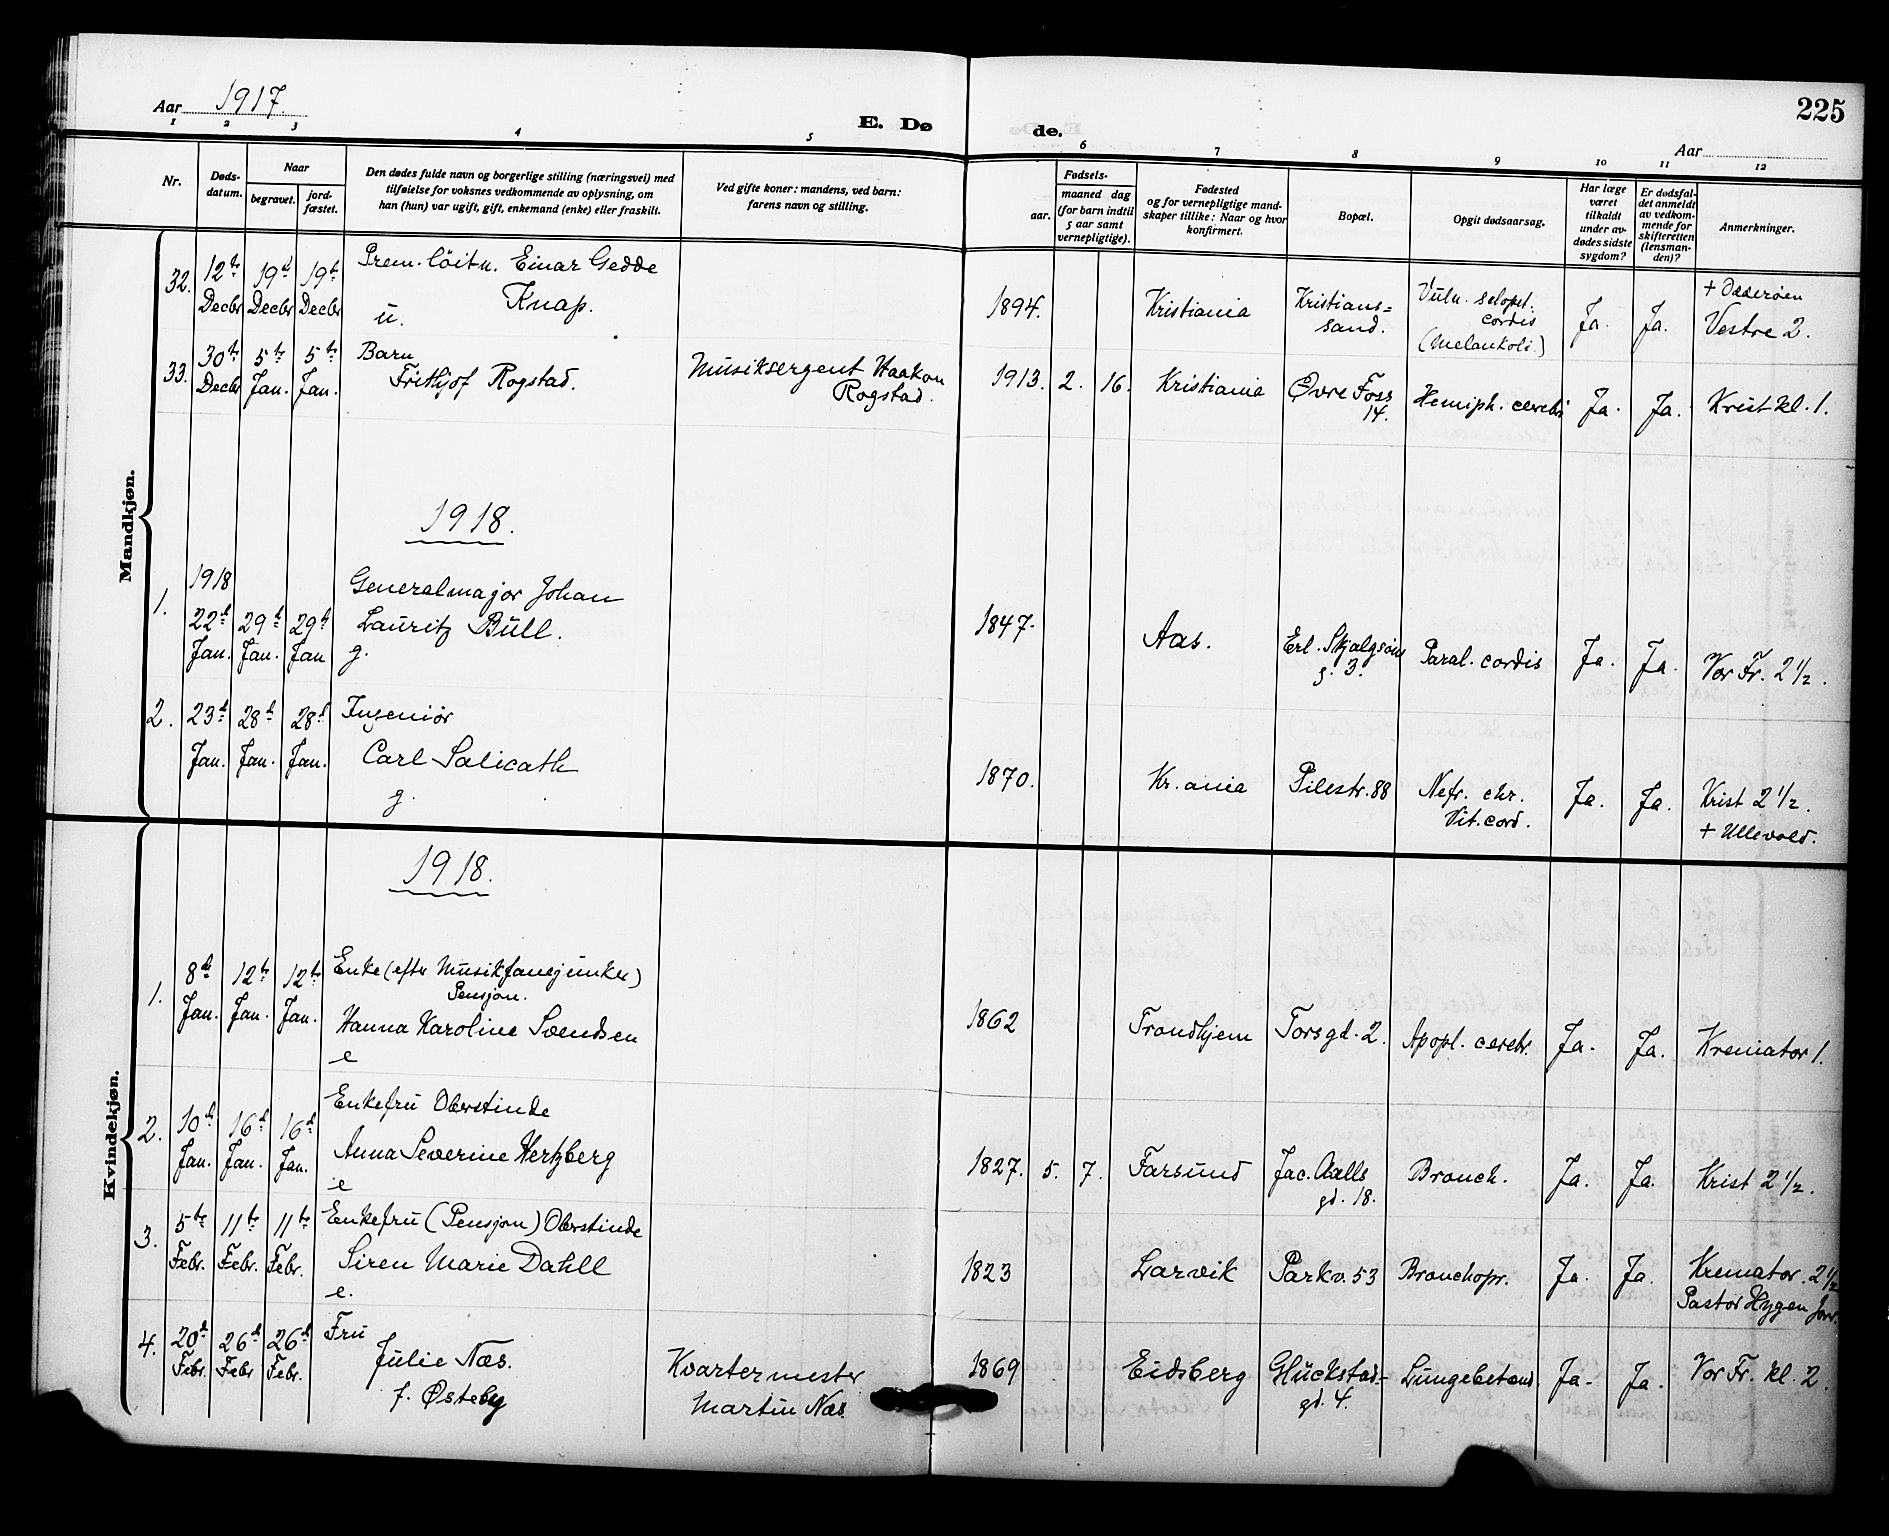 Aar 1917.
E. Dø
de.
225
Aar
1 2 3 4 5 6 7 8 9 10 11 12
Nr.
Døds-
datum.
Naar
begravet.
jord-
fæstet.
Den dødes fulde navn og borgerlige stilling (næringsvei) med
tilføielse for voksnes vedkommende av oplysning, om
han (hun) var ugift, gift, enkemand (enke) eller fraskilt.
Ved gifte koner: mandens, ved barn:
farens navn og stilling.
Fødsels-
aar.
maaned dag
(for barn indtil
5 aar samt
vernepligtige).
Fødested
og for vernepligtige mand-
skaper tillike: Naar og hvor
konfirmert.
Bopæl.
Opgit dødsaarsag.
Har læge
været
tilkaldt
under av-
dødes sidste
sygdom?
Er dødsfal-
det anmeldt
av vedkom-
mende for
skifteretten
(lensman-
den)?
Anmerkninger.
Mandkjøn.
32. 12te Decbr 19d Decbr 19te Decbr
Prem. löitn. Einar Gedde
Knap.
u.
1894. Kristiania
Kristians=
sand.
Vuln. sclopet.
cordis
(Melankoli.)
Ja. Ja.
+ Odderøen
Vestre 2.
33. 30te Decbr 5te Jan. 5te Jan.
Barn
Frithjof Rogstad.
Musiksergent Haakon
Rogstad.
1913. 2. 16. Kristiania
Øvre Foss
14.
Hemiph. cerebri Ja. Ja. Krist kl. 1.
1918.
1918
1. 22d Jan. 29d Jan. 29d Jan
Generalmajor Johan
Lauritz Bull.
g.
1847. Aas.
Erl. Skjalgsøns
g. 3.
Paral. cordis Ja. Ja. Vor Fr. 2 1/2.
2. 23d Jan. 28d Jan. 28d Jan.
Ingeniør
Carl Salicath
g.
1870. Kr.ania Pilestr. 88
Nefr. chr.
Vit. cord.
Ja. Ja.
Krist 2 1/2.
+ Ullevold.
Kvindekjøn.
1918.
1. 8d Jan. 12te Jan. 12te Jan.
Enke (efter Musikfanejunker)
Pensjon.
Hanna Karoline Svendsen
e
1862 Trondhjem Torsgd. 2. Apopl. cerebr. Ja. Ja. Kremator 1.
2. 10d Jan. 16d Jan. 16d Jan.
Enkefru Oberstinde
Anna Severine Hertzberg
e
1827. 5. 7. Farsund
Jac. Aalls
gd. 18.
Bronch. Ja. Ja. Krist 2 1/2.
3. 5te Febr. 11te Febr. 11te Febr.
Enkefru (Pensjon) Oberstinde
Siren Marie Dahll
e.
1823 Larvik Parkv. 53 Bronchopn. Ja. Ja.
Kremator. 2 1/2
Pastor Hygen
4. 20d Febr. 26d Febr 26d Febr.
Fru
Julie Næs.
f. Østeby
Kvartermester
Martin Næs.
1869 Eidsberg
Glückstad-
gd. 4.
Lungebetænd. Ja- Ja. Vor Fr. kl. 2.